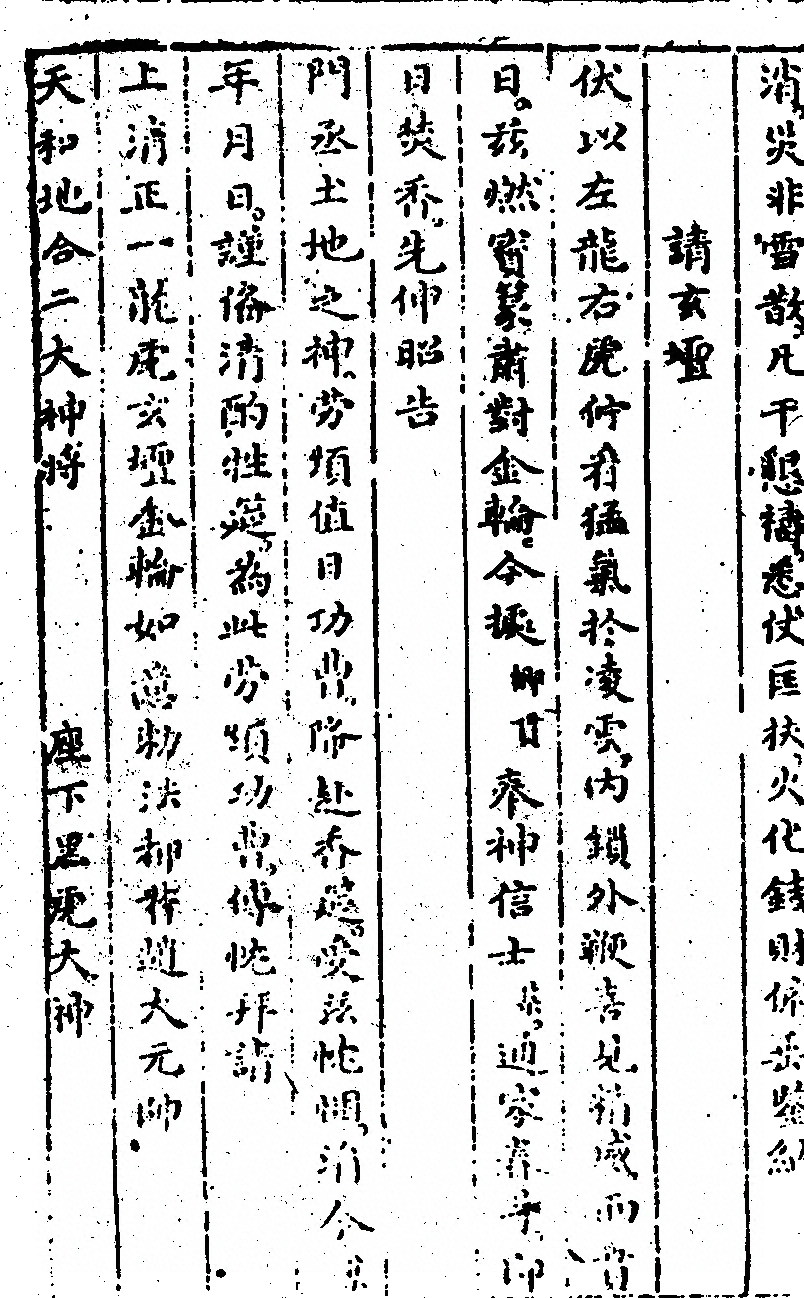 消災非雪散凡干懇禱悉伏匡扶火化錢財俯垂鑒納
請玄壇
伏以左龍右虎作猛氣於凌雲內鎖外鞭喜見精威而
日茲燃寶篆肅對金輪今據鄉貫奉神信士某通家眷等即
日焚香先伸昭告
門丞土地之神勞煩值日功曹降赴香筵受茲忱悃涓今
年月日謹備清酌牲筵為此勞煩功曹傳忱拜請
上清正一龍虎玄壇金輪如意勅法都督趙大元帥
天和地合二大神將 座下黑虎大神